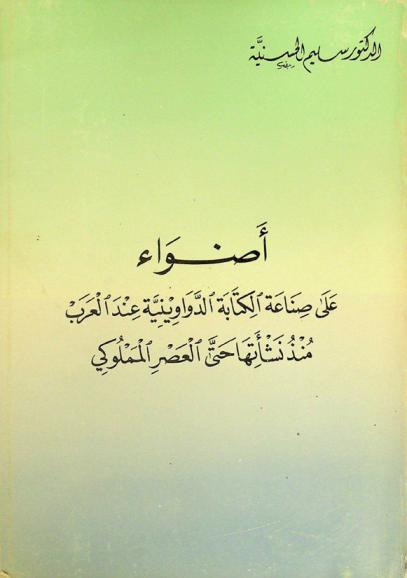 الدكتور سليم الحسنية
أَضوَاء
عَلىٰ صِنَاعَة الكِتَابَة الدَّوَاوِينِيَّة عِندَ العَرَبْ
مُنْذُ نَشْأَتِهَا حَتَّى العَصْرِ المَمْلُوكي